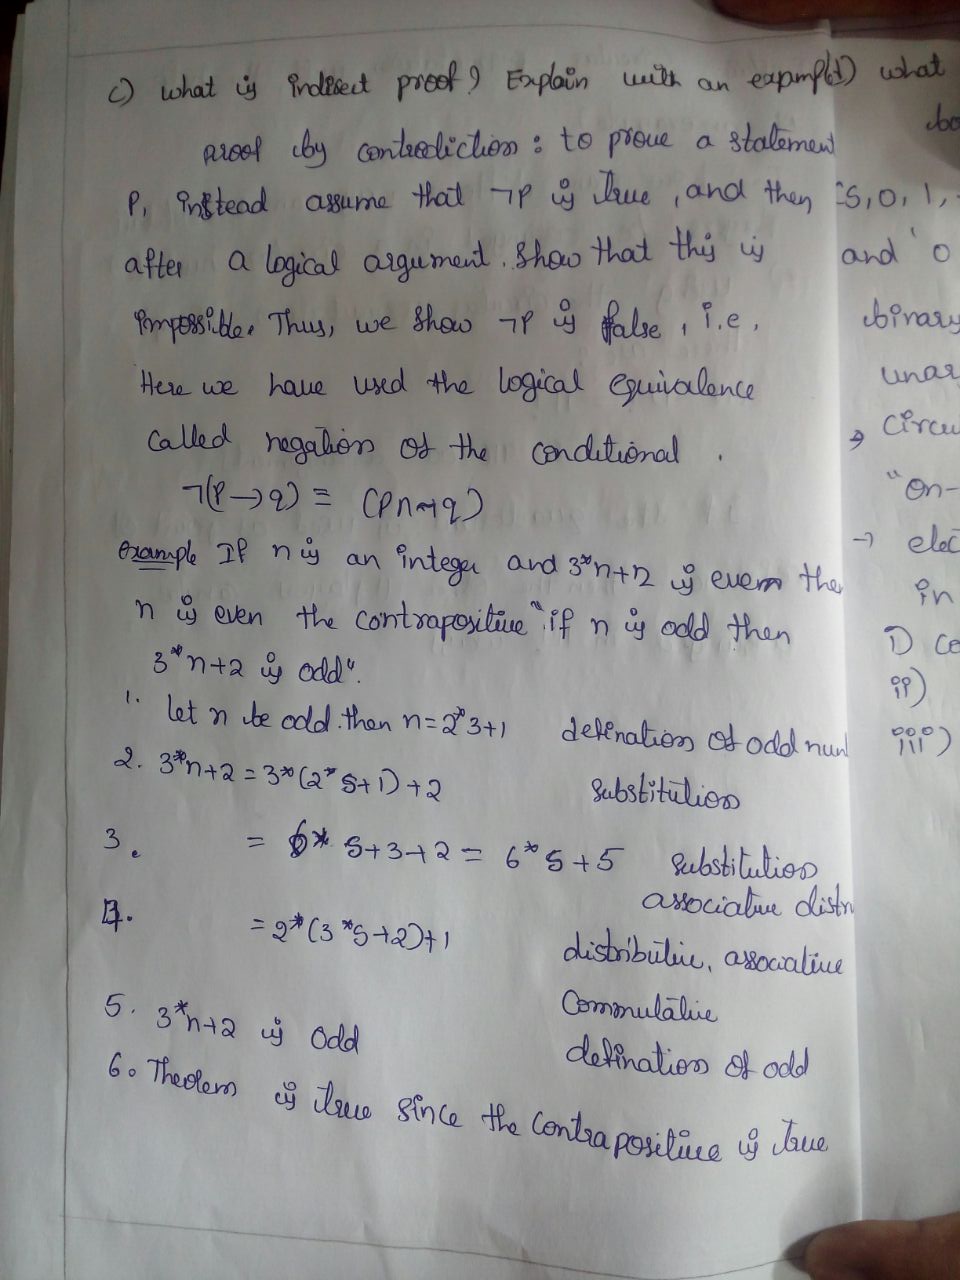 c) what is indirect proof? Explain with an example
proof by contradiction : to prove a statement
P, instead assume that ¬p is true, and then
after a logical argument. Show that this is
impossible. Thus, we show ¬p is false, i.e,
Here we have used the logical equivalence
Called negation of the conditional.
¬(p→q) ≡ (p∩¬q)
Example If n is an integer and 3*n+2 is even then
n is even the contrapositive "if n is odd then
3*n+2 is odd".
1. let n be odd. then n=2*3+1 defination of odd num
2. 3*n+2 = 3*(2*5+1)+2 Substitution
3. = 6* 5+3+2 = 6*5+5 substitution
associative distri
4. = 2*(3*5+2)+1 distributive, associative
Commutative
5. 3*n+2 is odd defination of odd
6. Theorem is true since the Contrapositive is true
d) what
bo
5, 0, 1,
and 0
binary
unar
→ Circu
"on-
→ elec
in
i) Co
ii)
iii)